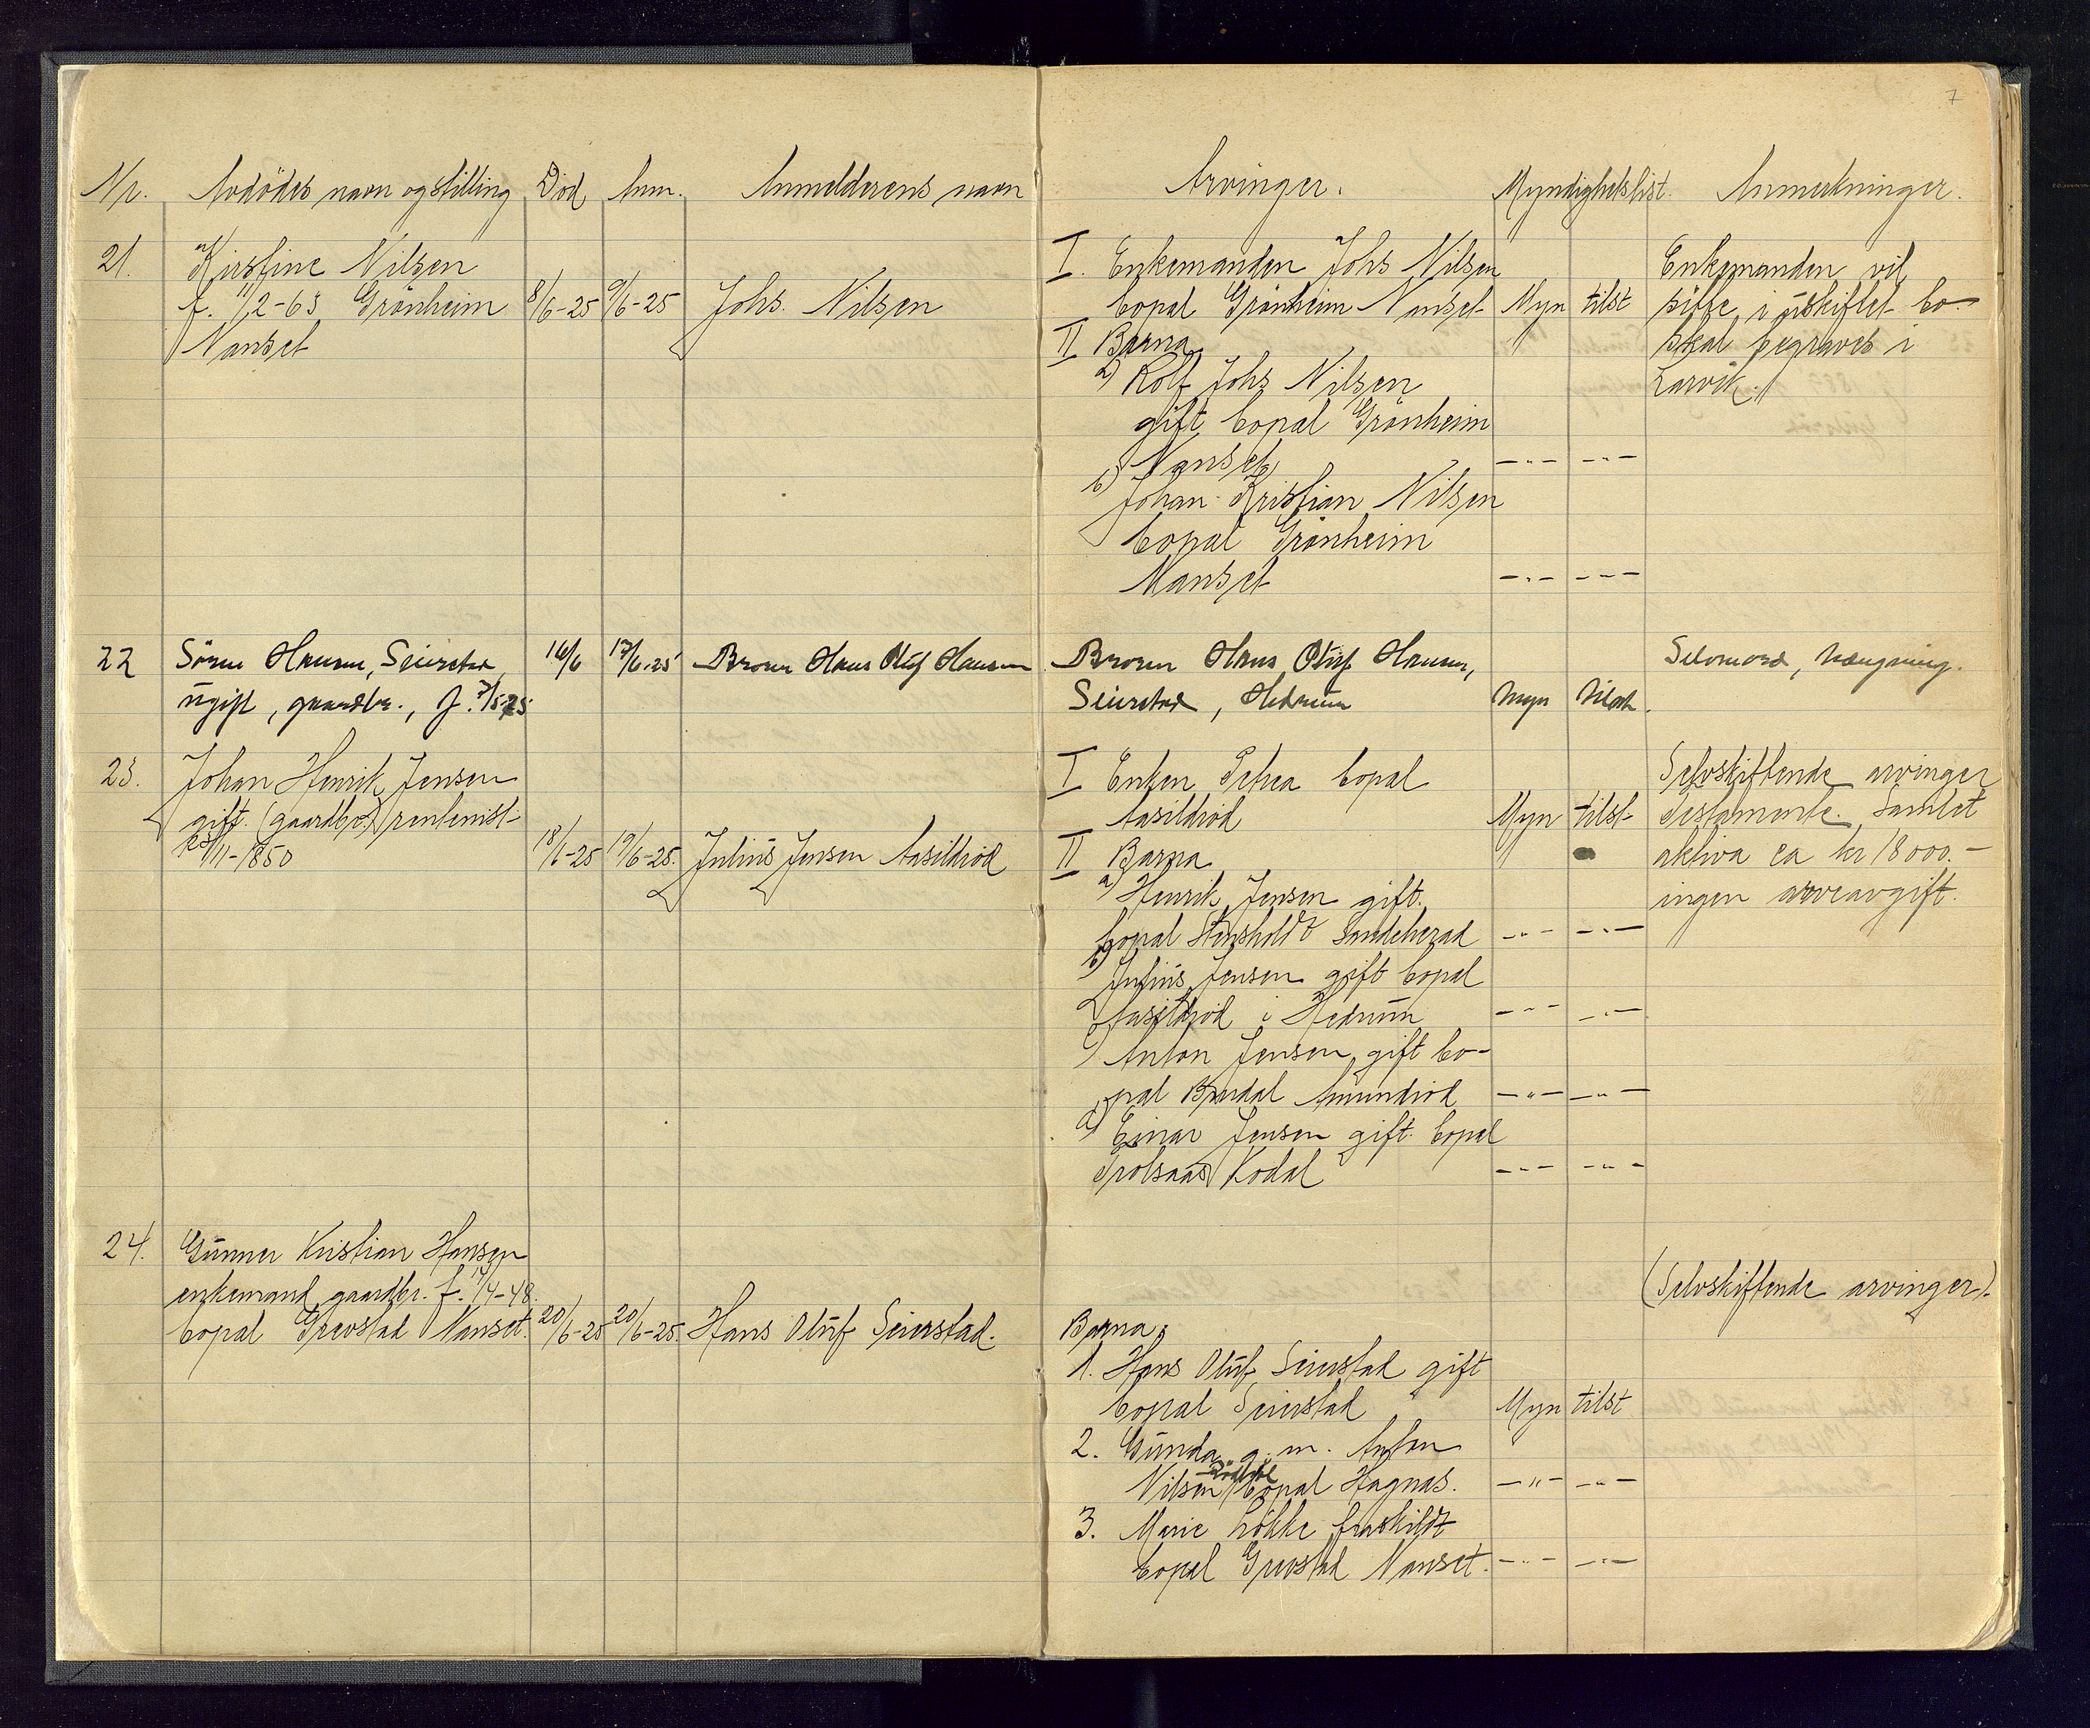 7
Nr. Avdødes navn og stilling Død Anm. Anmelderens navn
21. Kirstine Nilsen
f. 11/2-63 Grønheim 8/6-25 9/6-25 Johs. Nilsen
Nanset
22 Søren Hansen, Seierstad 16/6 17/6-25 Broren Hans Oluf Hansen
ugift, gaardbr., f.
23. Johan Henrik Jensen
gift. (gaardbr.) rentenist
25/11-1850 18/6-25 19/6-25. Julius Jensen Aasildrød
24. Gunner Kristian Hansen
enkemand gaardbr. f. 17/4-48.
bopal Grevstad Nanset. 20/6-25 20/6-25. Hans Oluf Seierstad.
Arvinger. Myndighet tilst. Anmerkninger.
I. Enkemanden Johs Nilsen Enkemanden vil
bopal Grønheim Nanset Myn tilst sitte i uskiftet bo
II Barna skal begraves i
a) Rolf Johs Nilsen Larvik.
gift bopal Grønheim
Nanset —„— —„—
b) Johan Kristian Nilsen
bopal Grønheim
Nanset —„— —„—
Broren Hans Oluf Hansen, Selvmord, hængning.
Seierstad, Hedrum Myn tilst.
I Enken Petrea bopal Selvskiftende arvinger
Aasildrød Myn tilst Testamente. Samlet
II Barna aktiva ca kr 18000.-
a) Henrik Jensen gift. ingen arveavgift.
bopal Stensholdt Sandeherad —„— —„—
b) Julius Jensen gift bopal
Aasildrød i Hedrum —„— —„—
c) Anton Jensen gift bo-
pal Amundrød —„— —„—
d) Einar Jensen gift. bopal
Trolsaas Kodal —„— —„—
(Selvskiftende arvinger).
Barna.
1. Hans Oluf Seierstad gift
bopal Seierstad Myn tilst
2. Gunda g. m. Anton
Nilsen bopal Hagnæs. —„— —„—
3. Marie Løkke fraskildt
bopal Grevstad Nanset. —„— —„—